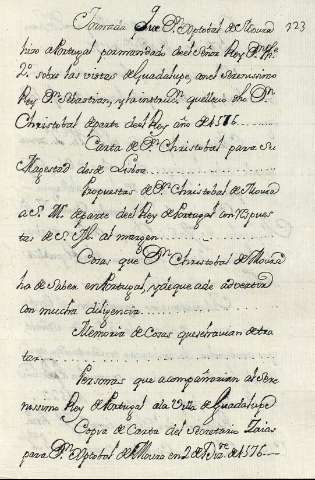 123
Jornada que Dⁿ Xptobal de Moura
hizo a Portugal por mandado de el Señor Rey Dⁿ Phe
2º sobre las vistas de Guadalupe, con el Serenissimo
Rey Dⁿ Sebastian, y la instruⁿ que llevó dho Dⁿ
Christobal de parte de el Rey año de 1576
Carta de Dⁿ Christobal para Su
Magestad desde Lisboa
Propuestas de Dⁿ Christobal de Moura
a S. M. de parte de el Rey de Portugal con respues
tas de S. M. al margen
Cosas que Dⁿ Christobal de Moura
ha de saber en Portugal, y de que a de advertir
con mucha diligencia
Memoria de Cosas que se havian de tra
tar
Personas que acompañarian al Sere
nissimo Rey de Portugal a la Villa de Guadalupe
Copia de Carta del Secretario Zaias
para Dⁿ Xptobal de Moura en 2 de Dizre de 1576